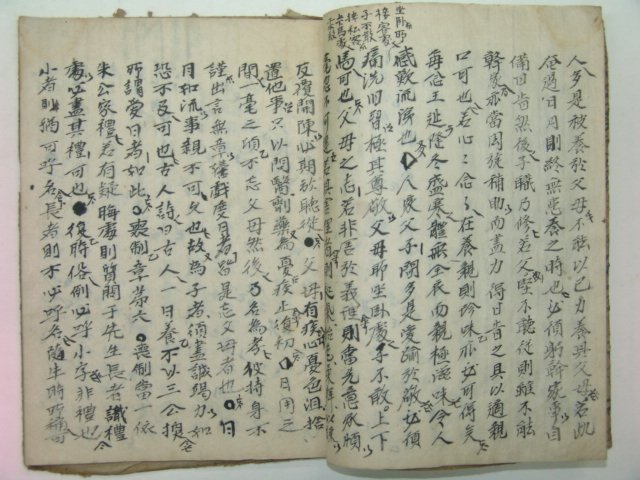 坐卧所
接客處
子不敢
接私客
上下馬處
子不敢
人多是被養於父母不能以己力養其父母若此
奄過日月則終無忠養之時也必須躬幹家事自
備甘旨然後子職乃修若父母堅不聽從則雖不能
幹家亦當周旋補助而盡力得甘旨之具以適親
口可也若心心念念在養親則珍味亦必可得矣
每念王延隆冬盛寒體無全衣而親極滋味令人
感歎流涕也人家父子間多是愛踰於敬必須
痛洗旧習極其尊敬父母所坐卧處子不敢上下
馬可也父母之志若非害於義理則當先意承順
反覆開陳必期於聽從父母有疾心憂色沮捨
置他事只以問醫劑藥爲憂疾止復初日用之
間一毫之頃不忘父母然後乃名爲孝彼持身不
謹出言無章嬉戲度日者皆是忘父母者也日
月如流事親不可久也故爲子者須盡誠竭力如
恐不及可也古人詩曰古人一日養不以三公換
所謂愛日者如此喪制章第六喪制當一依
朱公家禮若有疑晦處則質問于先生長者識禮
處必盡其禮可也復時俗例必呼小字非禮也
小者則猶可呼名長者則不必呼名隨生時所稱